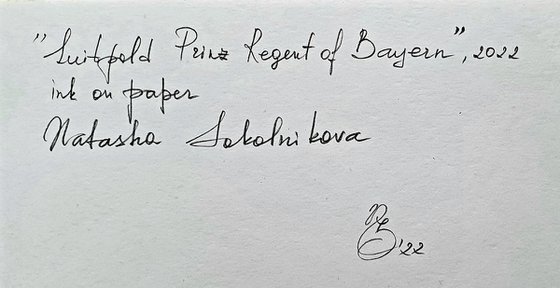 "Luitpold Prinz Regent of Bayern", 2022
ink on paper
Natasha Sokolnikova
'22